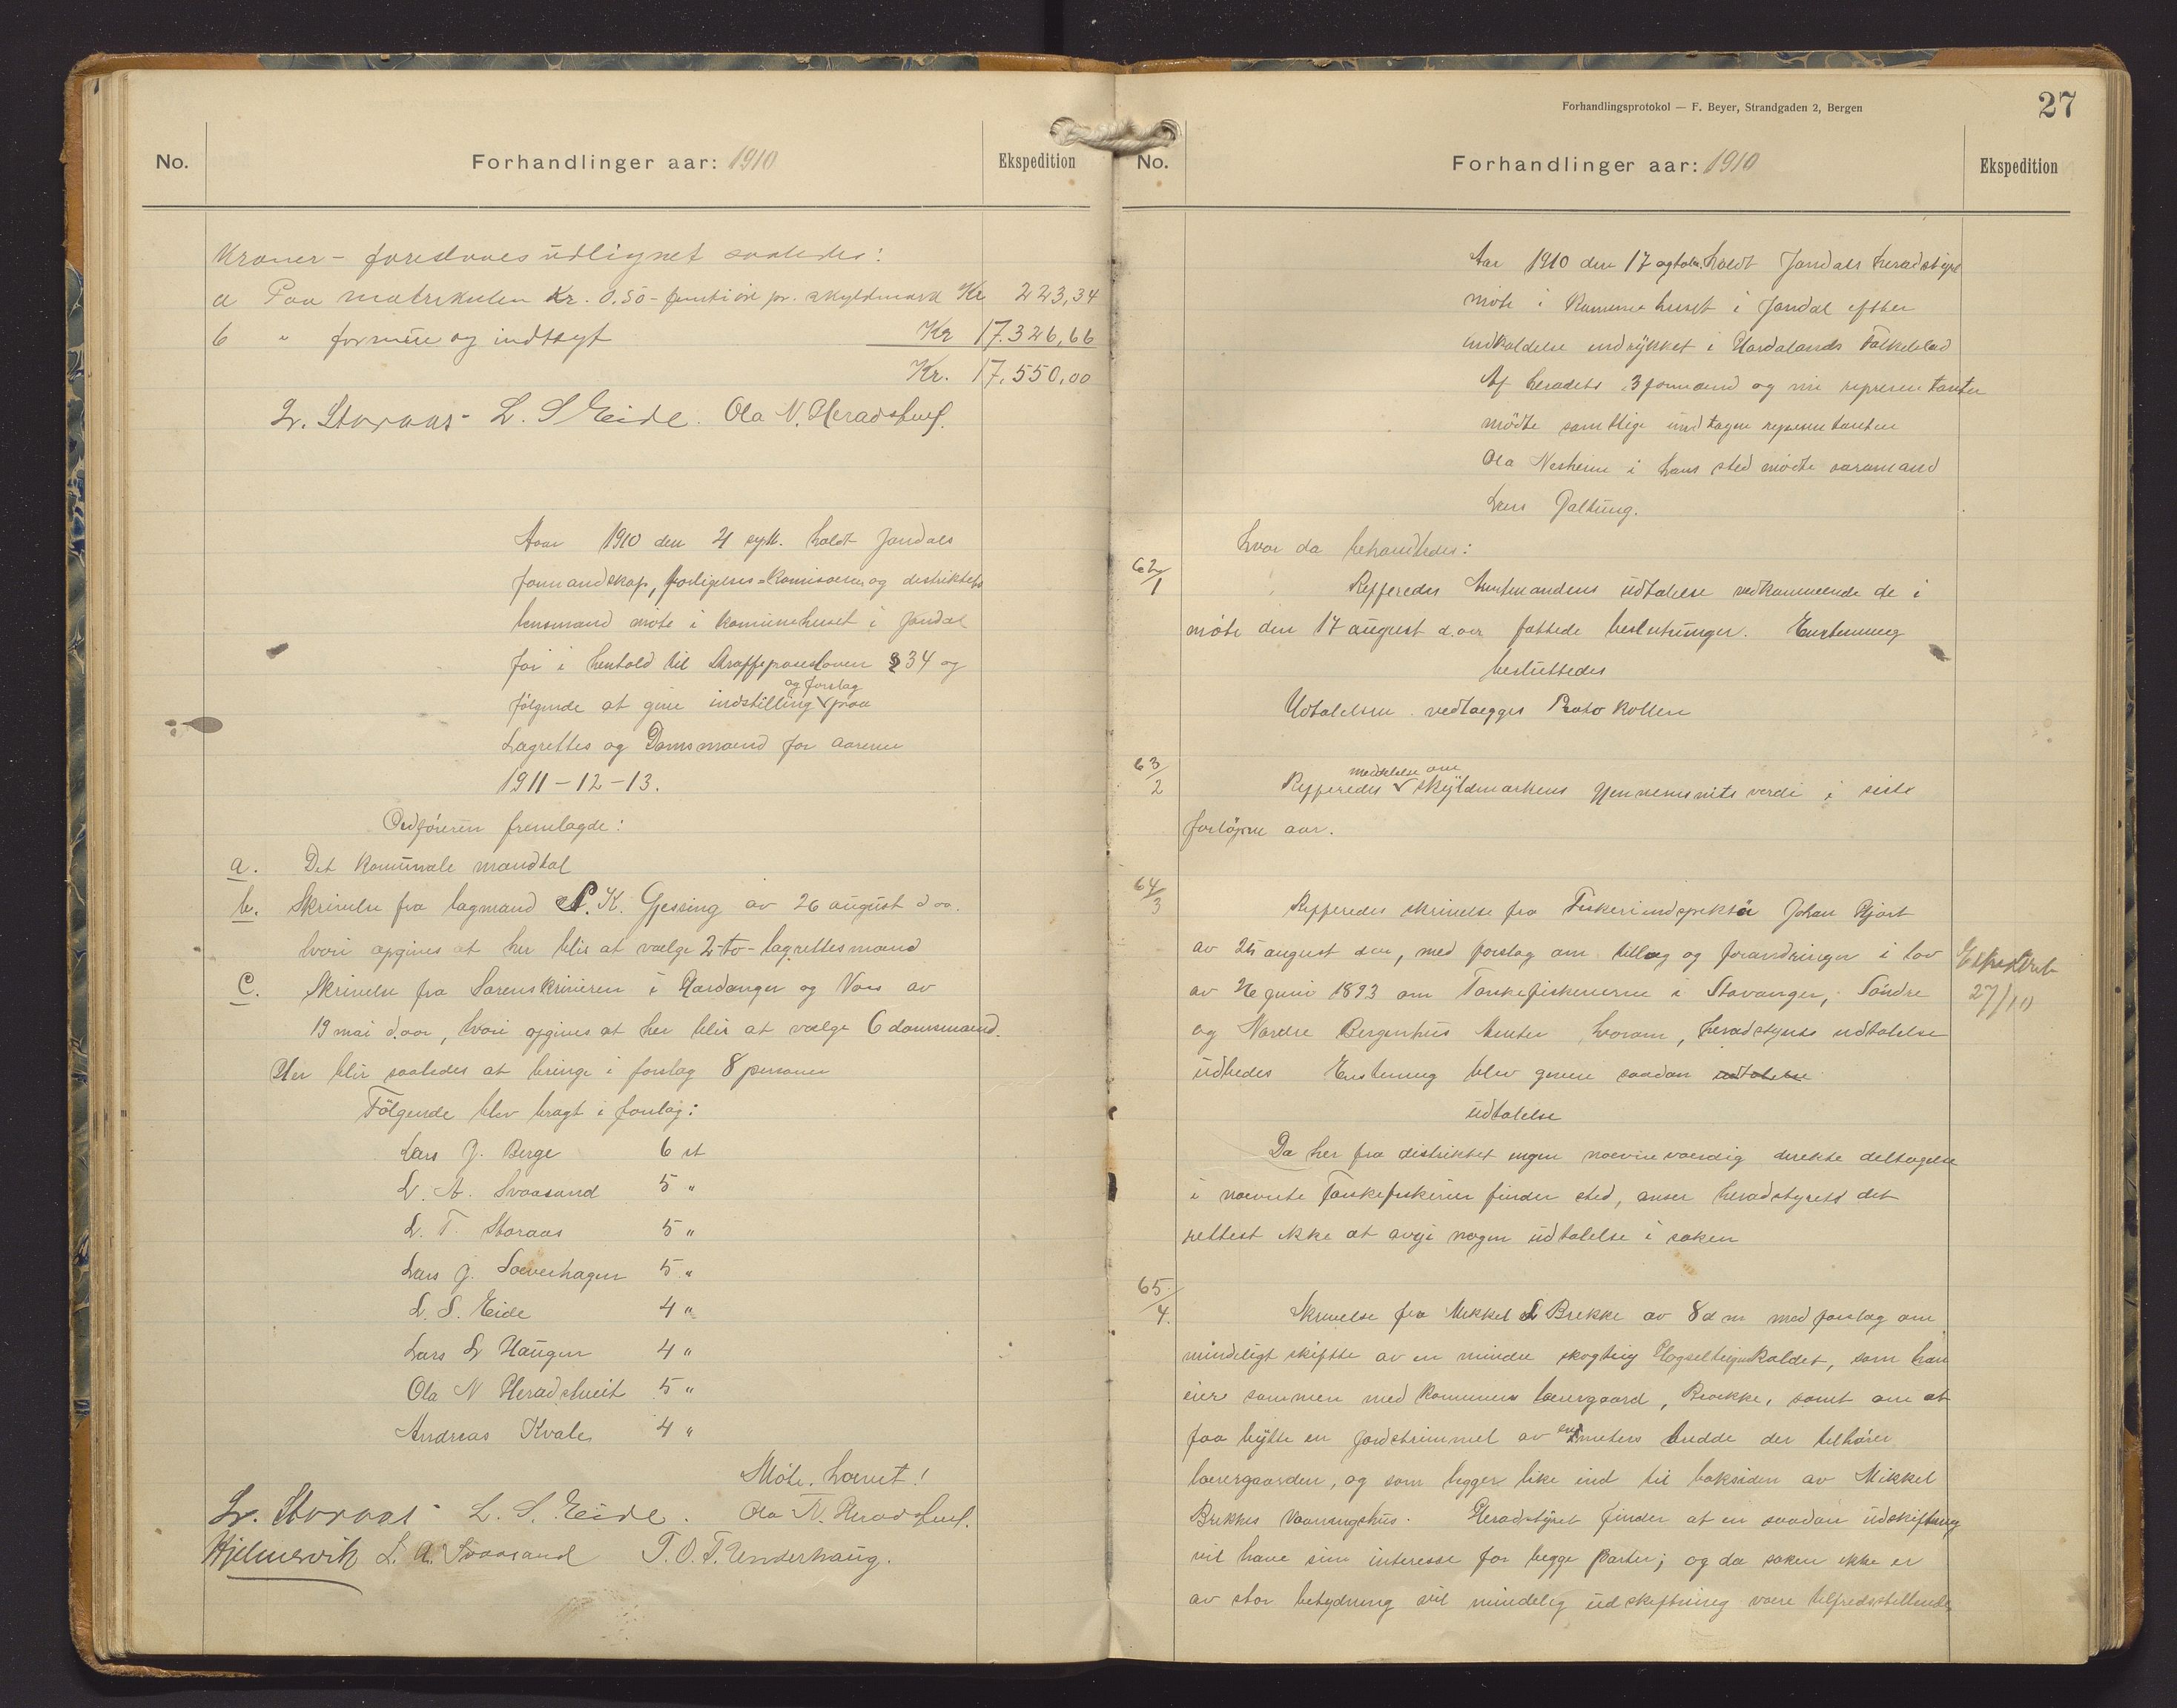 No.
Forhandlinger aar: 1910
Ekspedition
Kroner - foreslaaes udlignet saaledes:
a Paa matrikulen Kr. 0.50 - femti øre pr. skyldmark Kr 223,34
b " formue og indtægt Kr 17.326,66
Kr. 17.550,00
Lr. Storaas L. S. Eide. Ola N. Heradstveit.
Aar 1910 den 21 sept. holdt Jondals
formandskap, forligelses-Komisionen og distriktets
lensmand møte i komunehuset i Jondal
for i henhold til Straffeprosesloven § 34 og
følgende at give indstilling og forslag paa
Lagrettes og Domsmænd for aarene
1911-12-13.
Ordføreren fremlagde:
a. Det Komunale mandtal
b. Skrivelse fra lagmand N. K. Gjessing av 26 august d aa.
hvori opgives at her blir at vælge 2-to-lagrettesmænd
c. Skrivelse fra Sorenskriveren i Hardanger og Vos av
19 mai d.aar, hvori opgives at her blir at vælge 6 domsmænd.
Her blir saaledes at bringe i forslag 8 personer
Følgende blev bragt i forslag:
Lars J. Berge 6 st
L. A. Svaasand 5 "
L. T. Storaas 5 "
Lars J. Samehagen 5 "
L. S. Eide 4 "
Lars L Haugen 4 "
Ola N Heradstveit 5 "
Andreas Kvale 4 "
Møte hævet!
Lr. Storaas L. S. Eide. Ola N. Heradstveit.
Hjelmervik L. A. Svaasand T. O. T. Underhaug.
Forhandlingsprotokol — F. Beyer, Strandgaden 2, Bergen
27
No.
Forhandlinger aar: 1910
Ekspedition
Aar 1910 den 17 october holdt Jondals heradstyre
møte i Kommunehuset i Jondal efter
indkaldelse indrykket i Hordalands Folkeblad
Af heradets 3 formænd og ni representanter
mødte samtlige undtagen representanten
Ola Nesheim i hans sted mødte varamand
Lars Galtung.
hvor da behandledes:
62/1 Refferedes Amtmandens udtalelse vedkommende de i
møte den 17 august d.aar fattede beslutninger. Enstemmig
besluttedes
Udtalelsen vedlægges Protokollen
63/2 Refferedes meddelelse om skyldmarkens Gjennemsnits verdi i siste
forløpne aar.
64/3 Refferedes skrivelse fra Fiskeriindspektør Johan Hjort
av 25 august d aa, med forslag om tillæg og forandringer i lov
av 26 juni 1893 om Torskefiskerierne i Stavanger, Søndre
og Nordre Bergenhus Amter, hvorom, heradstyrets udtalelse
udbedes Enstemmig blev given saadan udtalelse
udtalelse
Da her fra distriktet ingen nævneværdig direkte deltagelse
i nævnte Torskefiskerier finder sted, anser heradstyret det
rettest ikke at avgi nogen udtalelse i saken
Ekspedert
27/10
65/4. Skrivelse fra Mikkel L Brekke av 8 d m med forslag om
mindeligt skifte av en mindre skogteig Hogselteigen kaldet, som han
eier sammen med Kommunens lærergaard, Brække, samt om at
faa bytte en Jordstrimmel av en meters bredde der tilhører
lærergaarden, og som legger like ind til baksiden av Mikkel
Brekkes Vaaningshus. Heradstyret finder at en saadan udskiftning
vil have sin interesse for begge parter; og da saken ikke er
av stor betydning vil mindelig udskiftning være tilfredsstillende